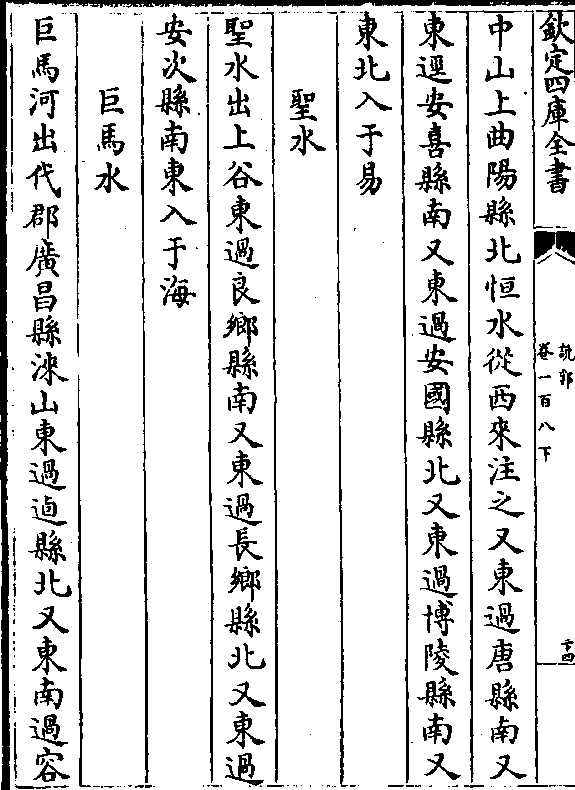 欽定四庫全書
說郛
卷一百八下
二十四
中山上曲陽縣北恒水從西來注之又東過唐縣南又
東逕安喜縣南又東過安國縣北又東過博陵縣南又
東北入于易
聖水
聖水出上谷東過良鄉縣南又東過長鄉縣北又東過
安次縣南東入于海
巨馬水
巨馬河出代郡廣昌縣淶山東過逎縣北又東南過容